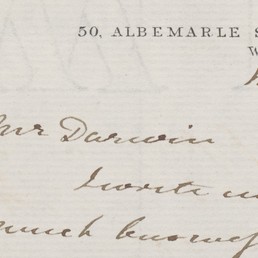 50, ALBEMARLE S
W
Mr Darwin
I write
much